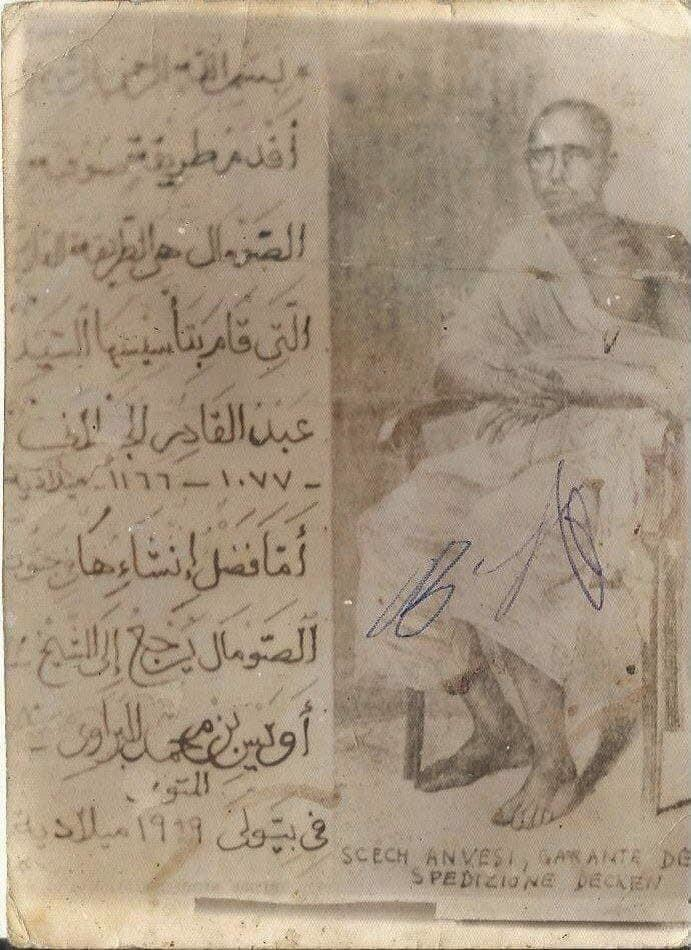 بسم الله الرحمن
أقدم طريقة صوفية
الصّومال هي الطريقة
الّتي قام بتأسيسها السّيّد
عبد القادر الجيلاني
- ١٠٧٧ - ١١٦٦ - ميلادية
أمّا فضل إنشاءها في جنوب
الصّومال يرجع إلى الشيخ
أويس بن محمد البراوي
المتوفى
في بيولي ١٩٩٩ ميلادية
SCECH ANVESI, GARANTE DE
SPEDIZIONE DECKEN